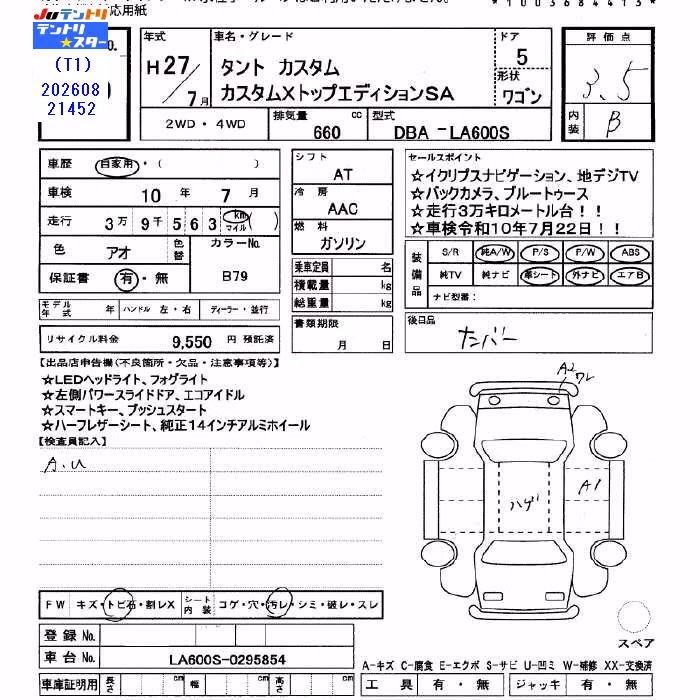 応用紙
*1003684413*
JUテントリ
テントリ
★スター
(T1)
202608
21452
No.
年式
車名・グレード
ドア
評価点
H 27/7月
タント カスタム
5
3.5
カスタムXトップエディションSA
形状
ワゴン
内装
B
2WD・4WD
排気量
660
cc
型式
DBA -LA600S
車歴
自家用・( )
シフト
AT
セールスポイント
☆イクリプスナビゲーション、地デジTV
☆バックカメラ、ブルートゥース
☆走行3万キロメートル台!!
☆車検令和10年7月22日!!
車検
10 年 7 月
冷房
AAC
走行
3万 9千 5 6 3 km マイル ( )
燃料
ガソリン
色
アオ
色替
カラーNo.
B79
装備品
S/R
純A/W
P/S
P/W
ABS
純TV
純ナビ
革シート
外ナビ
エアB
ナビ型番:
保証書
有・無
乗車定員
名
積載量
kg
総重量
kg
モデル年式
年
ハンドル 左・右
ディーラー・並行
書類期限
月 日
後日品
ナンバー
リサイクル料金
9,550 円 預託済
【出品店申告欄(不良箇所・欠品・注意事項等)】
☆LEDヘッドライト、フォグライト
☆左側パワースライドドア、エコアイドル
☆スマートキー、プッシュスタート
☆ハーフレザーシート、純正14インチアルミホイール
【検査員記入】
A.U
A2
ワレ
A1
ハゲ
FW
キズ・トビ石・割レX
シート内装
コゲ・穴・汚レ・シミ・破レ・スレ
スペア
登録 No.
車台 No.
LA600S-0295854
A-キズ C-腐食 E-エクボ S-サビ U-凹ミ W-補修 XX-交換済
車庫証明用
長さ
cm
幅
cm
高さ
cm
工具
有・無
ジャッキ
有・無